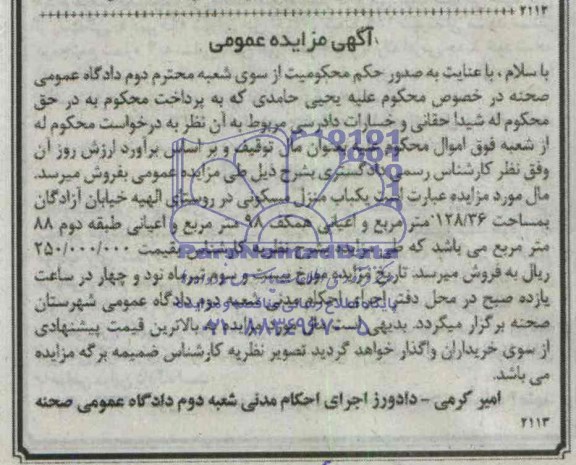 ۲۱۱۲
آگهی مزایده عمومی
با سلام ، با عنایت به صدور حکم محکومیت از سوی شعبه محترم دوم دادگاه عمومی
صحنه در خصوص محکوم علیه یحیی حامدی که به پرداخت محکوم به در حق
محکوم له شیدا حقانی و خسارات دادرسی مربوط به آن نظر به درخواست محکوم له
از شعبه فوق اموال محکوم علیه بعنوان مال توقیف و بر اساس برآورد ارزش روز آن
وفق نظر کارشناس رسمی دادگستری بشرح ذیل طی مزایده عمومی بفروش میرسد.
مال مورد مزایده عبارت است یکباب منزل مسکونی در روستای الهیه خیابان آزادگان
بمساحت ۱۲۸/۳۶ متر مربع و اعیانی همکف ۹۸ متر مربع و اعیانی طبقه دوم ۸۸
متر مربع می باشد که طی مزایده بشرح نظریه کارشناس بقیمت ۲۵۰/۰۰۰/۰۰۰
ریال به فروش میرسد. تاریخ مزایده مورخ بیست و سوم تیرماه نود و چهار در ساعت
یازده صبح در محل دفتر اجرای احکام مدنی شعبه دوم دادگاه عمومی شهرستان
صحنه برگزار میگردد. بدیهی است مال مورد مزایده به بالاترین قیمت پیشنهادی
از سوی خریداران واگذار خواهد گردید تصویر نظریه کارشناس ضمیمه برگه مزایده
می باشد.
امیر کرمی - دادورز اجرای احکام مدنی شعبه دوم دادگاه عمومی صحنه
۲۱۱۳
ParsNamadData
۰۲۱-۸۸۳۴۹۶۷۰-۵